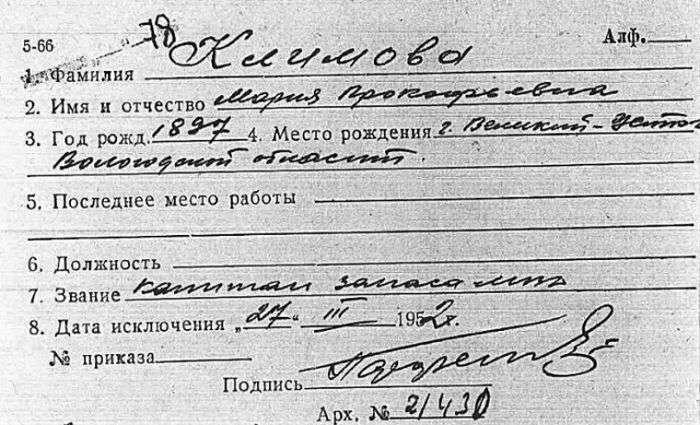 5-66 78 Алф.
1. Фамилия Климова
2. Имя и отчество Мария Прокофьевна
3. Год рожд. 1897 4. Место рождения г. Великий-Устюг
Вологодской области.
5. Последнее место работы
6. Должность
7. Звание капитан запаса
8. Дата исключения „27" III 1952г.
№ приказа
Подпись
Арх. № 21430